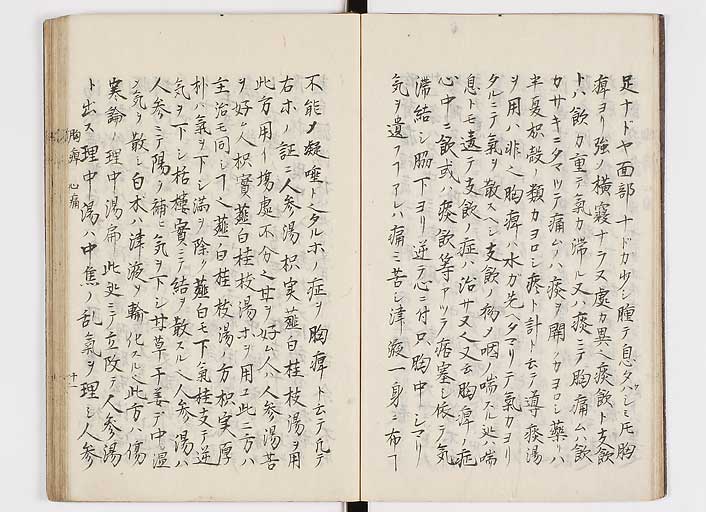 足ナドヤ面部ナドガ少シ腫テ息ダハシミ凡胸
痺ヨリ強ク横寝ナラヌ處カ異之痰飲ト支飲
トハ飲カ重テ氣カ滞ル又ハ痰ニテ胸痛ムハ飲
カサキニタマツテ痛ムソハ痰ヲ開クカヨロシ藥リハ
半夏枳殻ノ類カヨロシ疼ト計ト云テ導痰湯
ヲ用ハ非之胸痺ハ水ガ先ヘタマリテ氣カヨリ
タルニテ氣ヲ散スベシ支飲ノ病メ咽ノ喘
息トモ違テ支飲ノ症ハ治サヌ又云胸痺ノ症
心中ニ飲或ハ痰飲等アツテ痞塞シ依テ気
滞結シ脇下ヨリ逆テ心ニ付只胸中シマリ
気ヲ遺フコアレハ痛ミ苦シ津液一身ニ布
不能メ凝唾トヘタルホノ症ヲ胸痺ト云テ凡テ
右ホノ証ニ人参湯枳実薤白桂枝湯ヲ用
此方用リ塲虚不分之甘ヲ好ム人人参湯苦
ヲ好ム人枳實薤白桂枝湯ホヲ用エ此二方ハ
主治モ同シ薤白桂枝湯ノ方枳実厚
朴ハ氣ヲ下シ満ヲ除ク薤白モ下氣桂支テ逆
気ヲ下シ栝樓實ニテ結ヲ散スル之人参湯ハ
人参ニテ陽ヲ補ヒ气ヲ下シ甘草干姜デ中温
メ気ヲ散シ白朮ハ津液ヲ輸化スル之此方ハ傷
寒論ノ理中湯扁此処ニテ立改テ人参湯
ト出ス理中湯ハ中焦ノ乱氣ヲ理シ人参
胸痺 心痛
十一